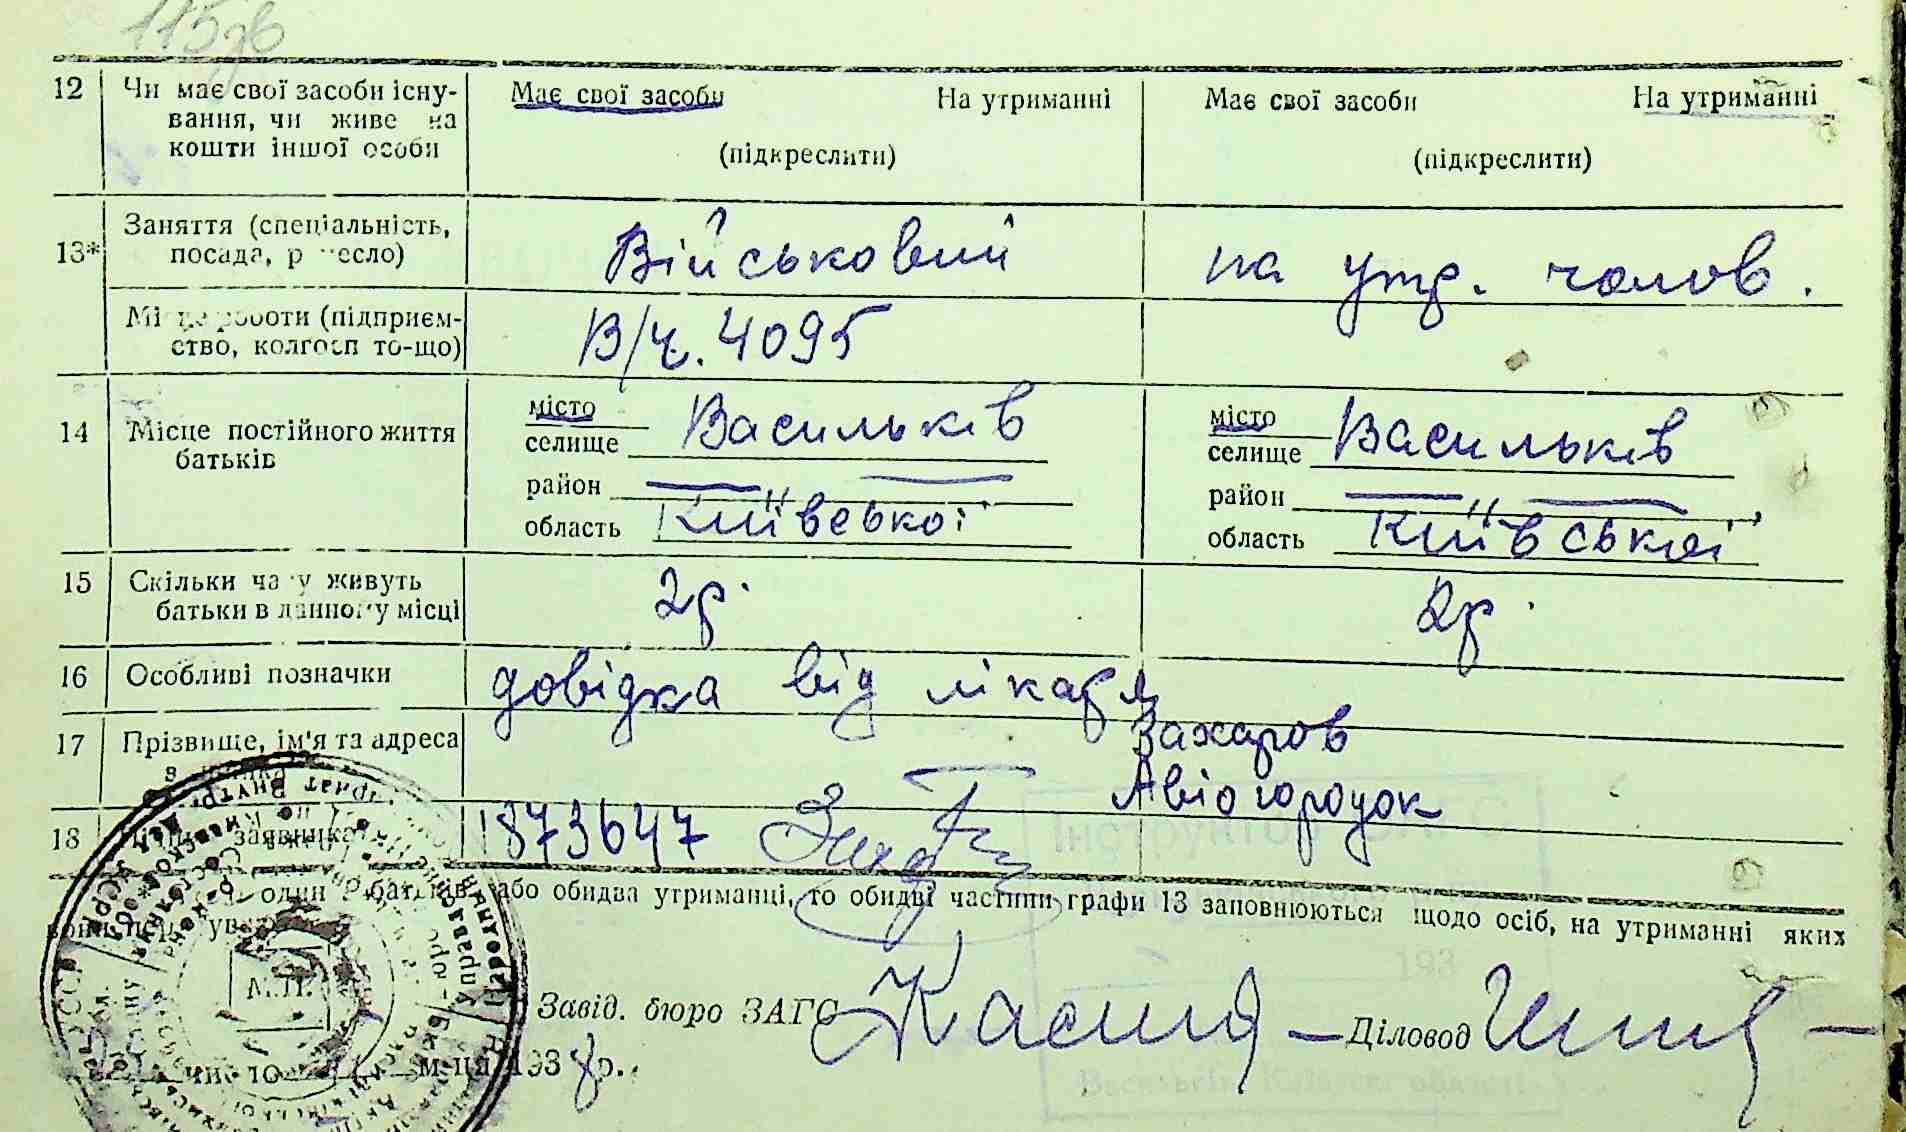 12 Чи має свої засоби існу- Має свої засоби На утриманні Має свої засоби На утриманні
вання, чи живе на
кошти іншої особи (підкреслити) (підкреслити)
13* Заняття (спеціальність, Військовий на утр. чолов.
посада, ремесло)
Місце роботи (підприєм- В/ч. 4095
ство, колгосп то-що)
14 Місце постійного життя місто Васильків місто Васильків
батьків селище селище
район — — район — —
область Київської область Київської
15 Скільки часу живуть 2р. 2р.
батьки в данному місці
16 Особливі позначки довідка від лікаря
17 Прізвище, ім'я та адреса Захаров
заявника Авіогородок
18 заявника 1873647
один з батьків, або обидва утриманці, то обидві частини графи 13 заповнюються щодо осіб, на утриманні яких
вони перебувають
М.П.
Завід. бюро ЗАГС Діловод
число м-ця 1938 р.
Інструктор ЗАГС
193